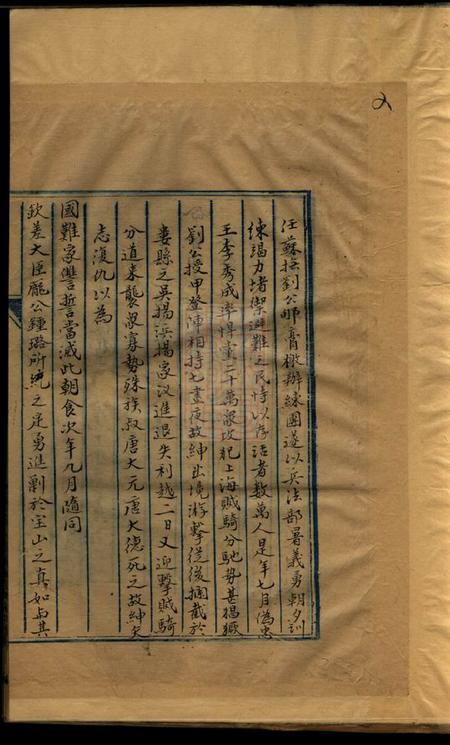 任蘇撫劉公郇膏檄辦練團遂以兵法部署義勇朝夕訓
練竭力堵禦避難之民恃以存活者數萬人是年七月偽忠
王李秀成率悍黨二十萬眾攻犯上海賊騎分馳勢甚猖獗
劉公授甲登陴相持七晝夜故紳出境游擊從後擱截於
婁縣之吳楊浜楊家漢進退失利越二日又迎擊賊騎
分道來襲眾寡勢殊族叔唐大元唐大德死之故紳矢
志復仇以為
國難家讐誓當滅此朝食次年九月隨同
欽差大臣龐公鍾璐所
之定勇進剿於宝山之真如與其